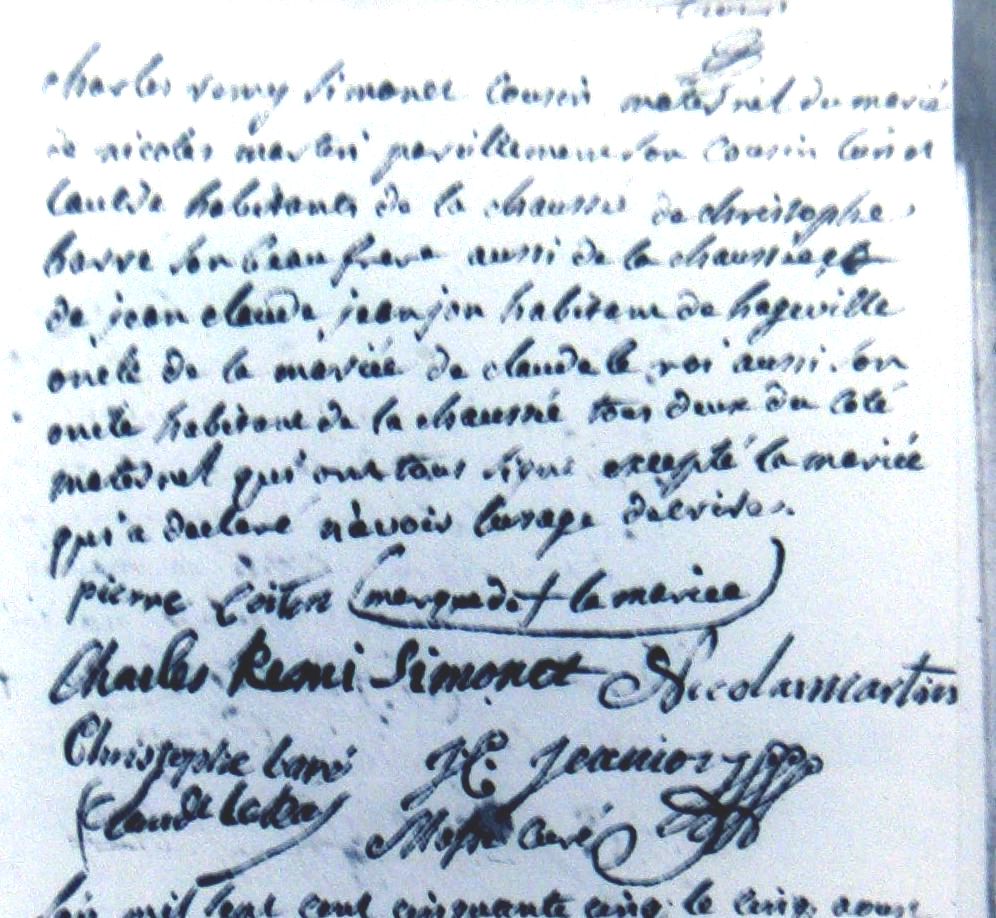 charles remy simonet cousin maternel du marié
de nicolas martin pareillement son cousin
habitants de la chaussée de christophe
barre son beau frere aussi de la chaussée et
de jean claude jeanjon habitant de hageville
oncle de la mariée de claude le roi aussi son
oncle habitant de la chaussée tous deux du coté
maternel qui ont tous signé excepté la mariée
qui a declaré n'avoir l'usage d'ecrire.
pierre marque de + la mariée
Charles Remi Simonet Nicolas martin
Christophe baré J C
Claude curé
l'an mil sept cent cinquante cinq le cinq